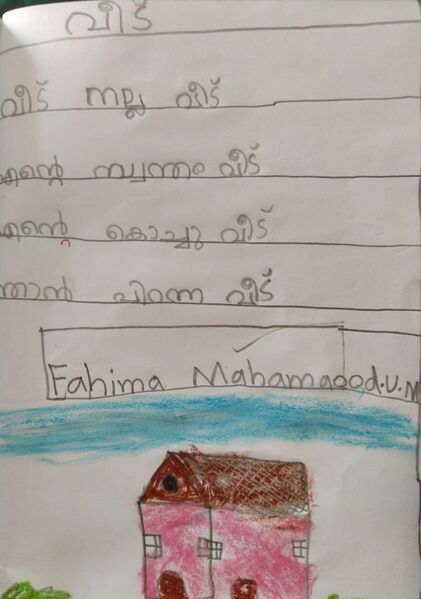 വീട്
വീട് നല്ല വീട്
എന്റെ സ്വന്തം വീട്
എന്റെ കൊച്ചു വീട്
ഞാൻ പിറന്ന വീട്
Fahima Mahamaood.U.M